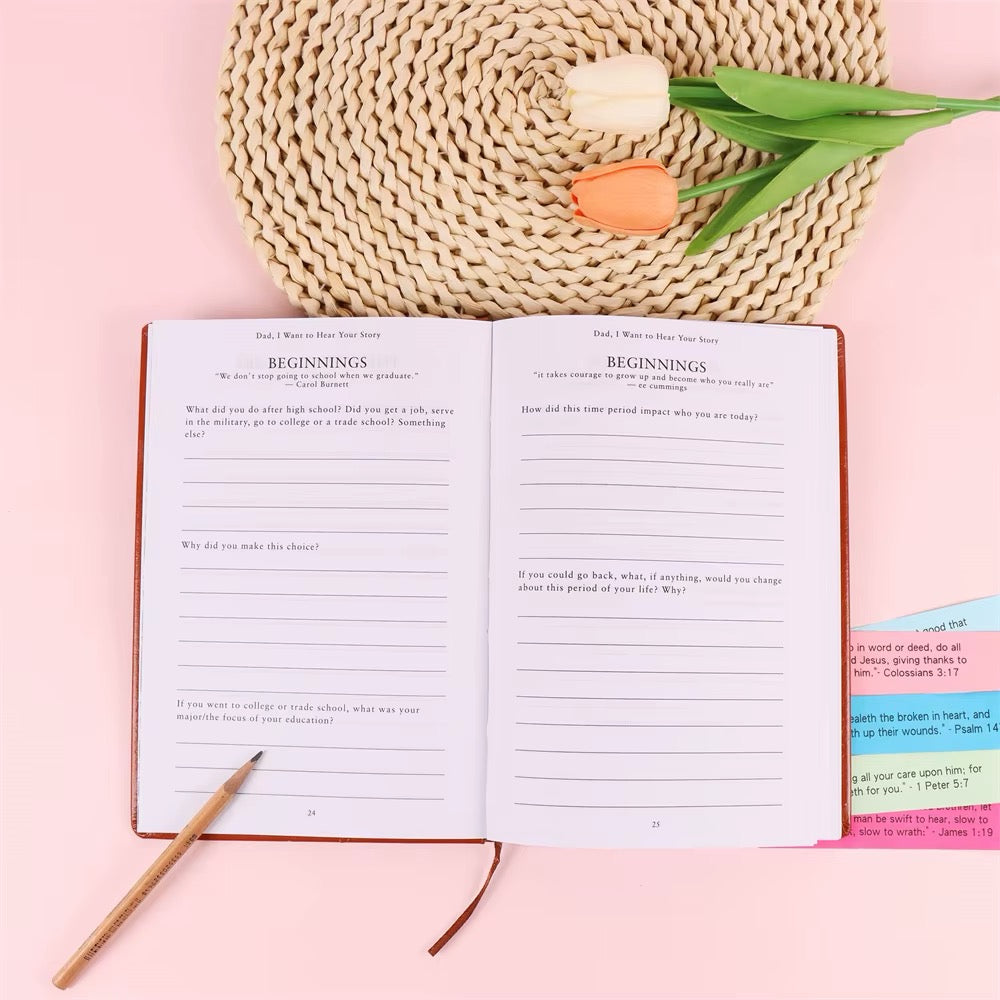 Dad, I Want to Hear Your Story
BEGINNINGS
“We don’t stop going to school when we graduate.”
— Carol Burnett
What did you do after high school? Did you get a job, serve
in the military, go to college or a trade school? Something
else?
Why did you make this choice?
If you went to college or trade school, what was your
major/the focus of your education?
24
Dad, I Want to Hear Your Story
BEGINNINGS
“it takes courage to grow up and become who you really are”
— ee cummings
How did this time period impact who you are today?
If you could go back, what, if anything, would you change
about this period of your life? Why?
25
good that
in word or deed, do all
Jesus, giving thanks to
him."- Colossians 3:17
the broken in heart, and
up their wounds." - Psalm
all your care upon him; for
for you." - 1 Peter 5:7
brethren, let
man be swift to hear, slow to
slow to wrath:"- James 1:19